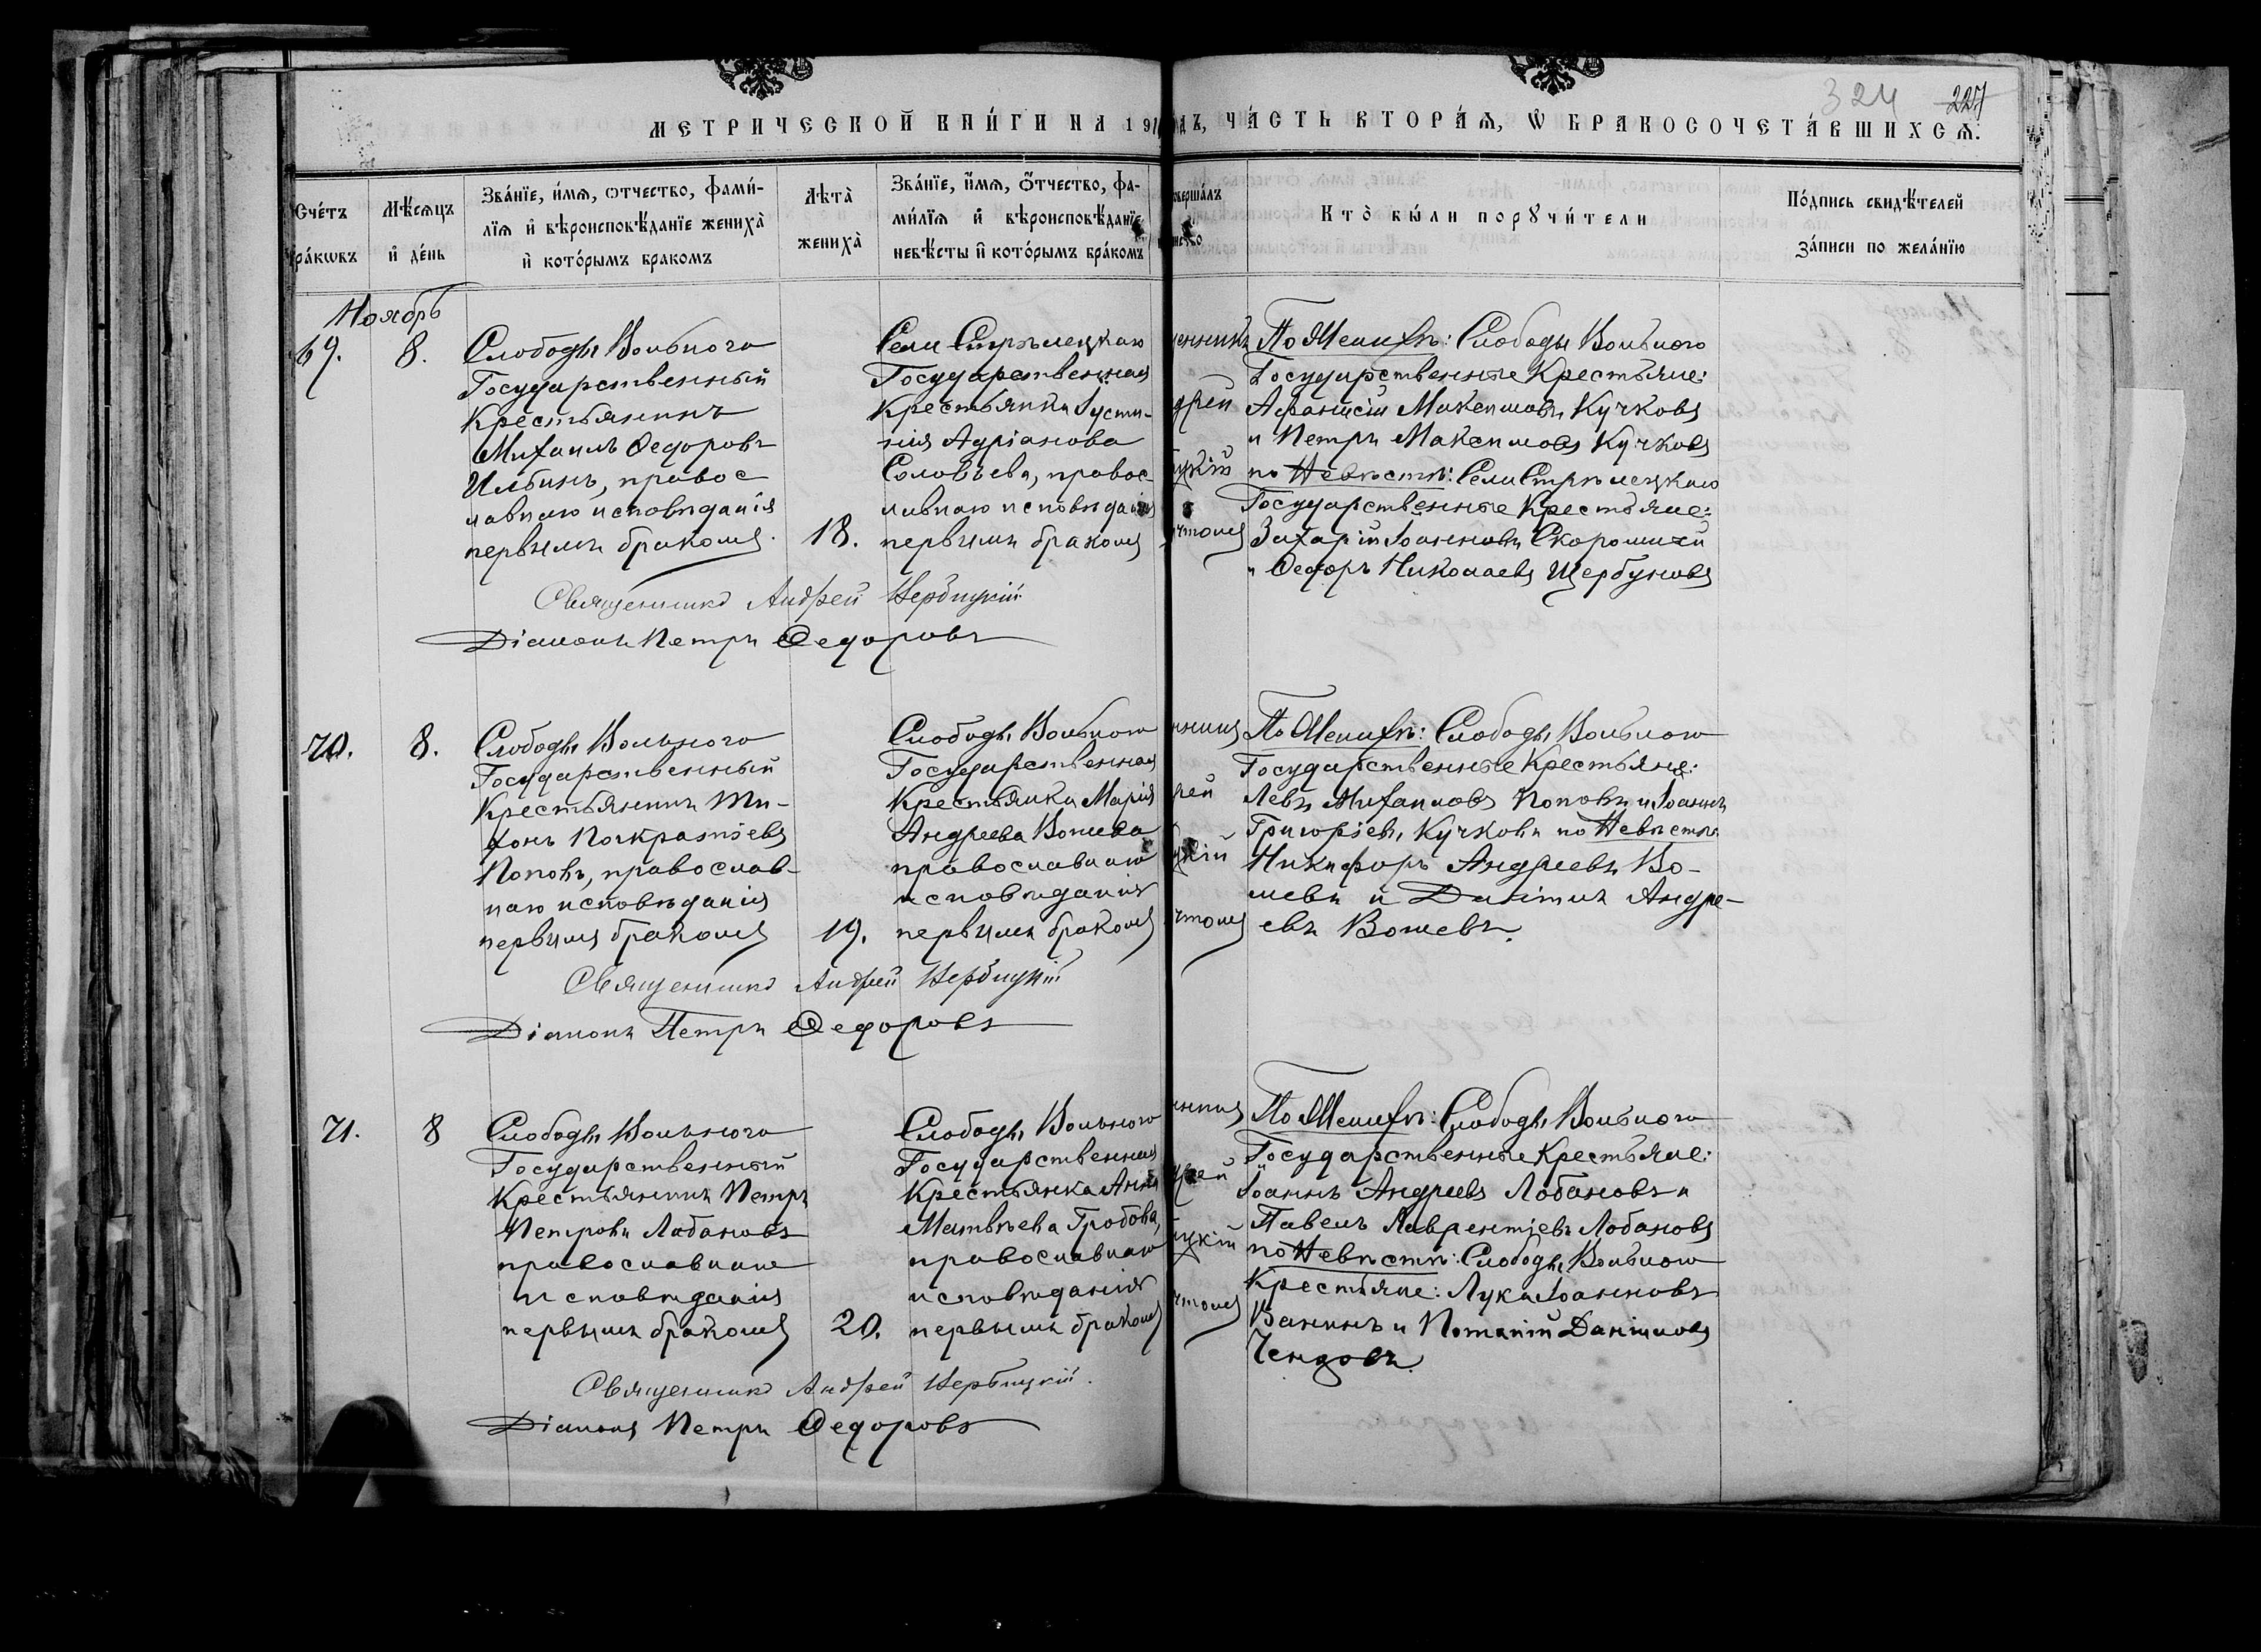 324 227
МЕТРИЧЕСКОЙ КНИ́ГИ НА 191 ДЪ, ЧА́СТЬ ВТОРА́Ѧ, Ѡ БРАКОСОЧЕТА́ВШИХСѦ:
Сче́тъ
ра́кѡвъ
Мѣ́сѧцъ
и҆ де́нь
Зва́нїе, и҆́мѧ, ѻтчество, фами́-
лїѧ и҆ вѣроисповѣ́данїе жениха̀
и҆ кото́рымъ бракомъ
Лѣта̀
жениха̀
Зва́нїе, и҆́мѧ, ѻ҆́тчество, фа-
ми́лїѧ и҆ вѣроисповѣ́данїе
невѣ́сты и҆ кото́рымъ бра́комъ
оверша́лъ
нство
Кто̀ бы́ли порꙋчи́тели
По́дпись свидѣ́телей
за́писи по жела́нїю
Ноябрь
69.
8.
Слободы Вольного
Государственный
Крестьянинъ
Михаилъ Ѳедоровъ
Ильинъ, правос
лавнаго исповѣданія
первымъ бракомъ.
18.
Села Стрѣлецкаго
Государственная
Крестьянка Іусти-
нія Адріанова
Соловьева, правос
лавнаго исповѣданія
первымъ бракомъ
енникъ
дрей
цкій
чтомъ
По Женихѣ: Слободы Вольного
Государственные Крестьяне:
Афанасій Максимовъ Кучковъ
и Петръ Максимовъ Кучковъ
по Невѣстѣ: Села Стрѣлецкаго
Государственные Крестьяне:
Захарій Іоанновъ
и Ѳедоръ Николаевъ Щербуновъ
Священникъ Андрей Вербицкій
Діаконъ Петръ Ѳедоровъ
70.
8.
Слободы Вольного
Государственный
Крестьянинъ Ти-
хонъ Панкратіевъ
Поповъ, православ-
наго исповѣданія
первымъ бракомъ
19.
Слободы Вольного
Государственная
Крестьянка Марія
Андреева Вошева
православнаго
исповѣданія
первымъ бракомъ
нникъ
рей
цкій
чтомъ
По Женихѣ: Слободы Вольного
Государственные Крестьяне:
Левъ Михаиловъ Поповъ и Іоаннъ
Григоріевъ Кучковъ по Невѣстѣ
Никифоръ Андреевъ Во-
шевъ и Даніилъ Андре-
евъ Вошевъ.
Священникъ Андрей Вербицкій
Діаконъ Петръ Ѳедоровъ
71.
8
Слободы Вольного
Государственный
Крестьянинъ Петръ
Петровъ Лобановъ
православнаго
исповѣданія
первымъ бракомъ
20.
Слободы Вольного
Государственная
Крестьянка Анна
Матвѣева Гробова,
православнаго
исповѣданія
первымъ бракомъ
нникъ
дрей
ицкій
чтомъ
По Женихѣ: Слободы Вольного
Государственные Крестьяне:
Іоаннъ Андреевъ Лобановъ и
Павелъ Лаврентіевъ Лобановъ
по Невѣстѣ: Слободы Вольного
Крестьяне: Лука Іоанновъ
Ванинъ и Потапій Даніиловъ
Священникъ Андрей Вербицкій.
Діаконъ Петръ Ѳедоровъ